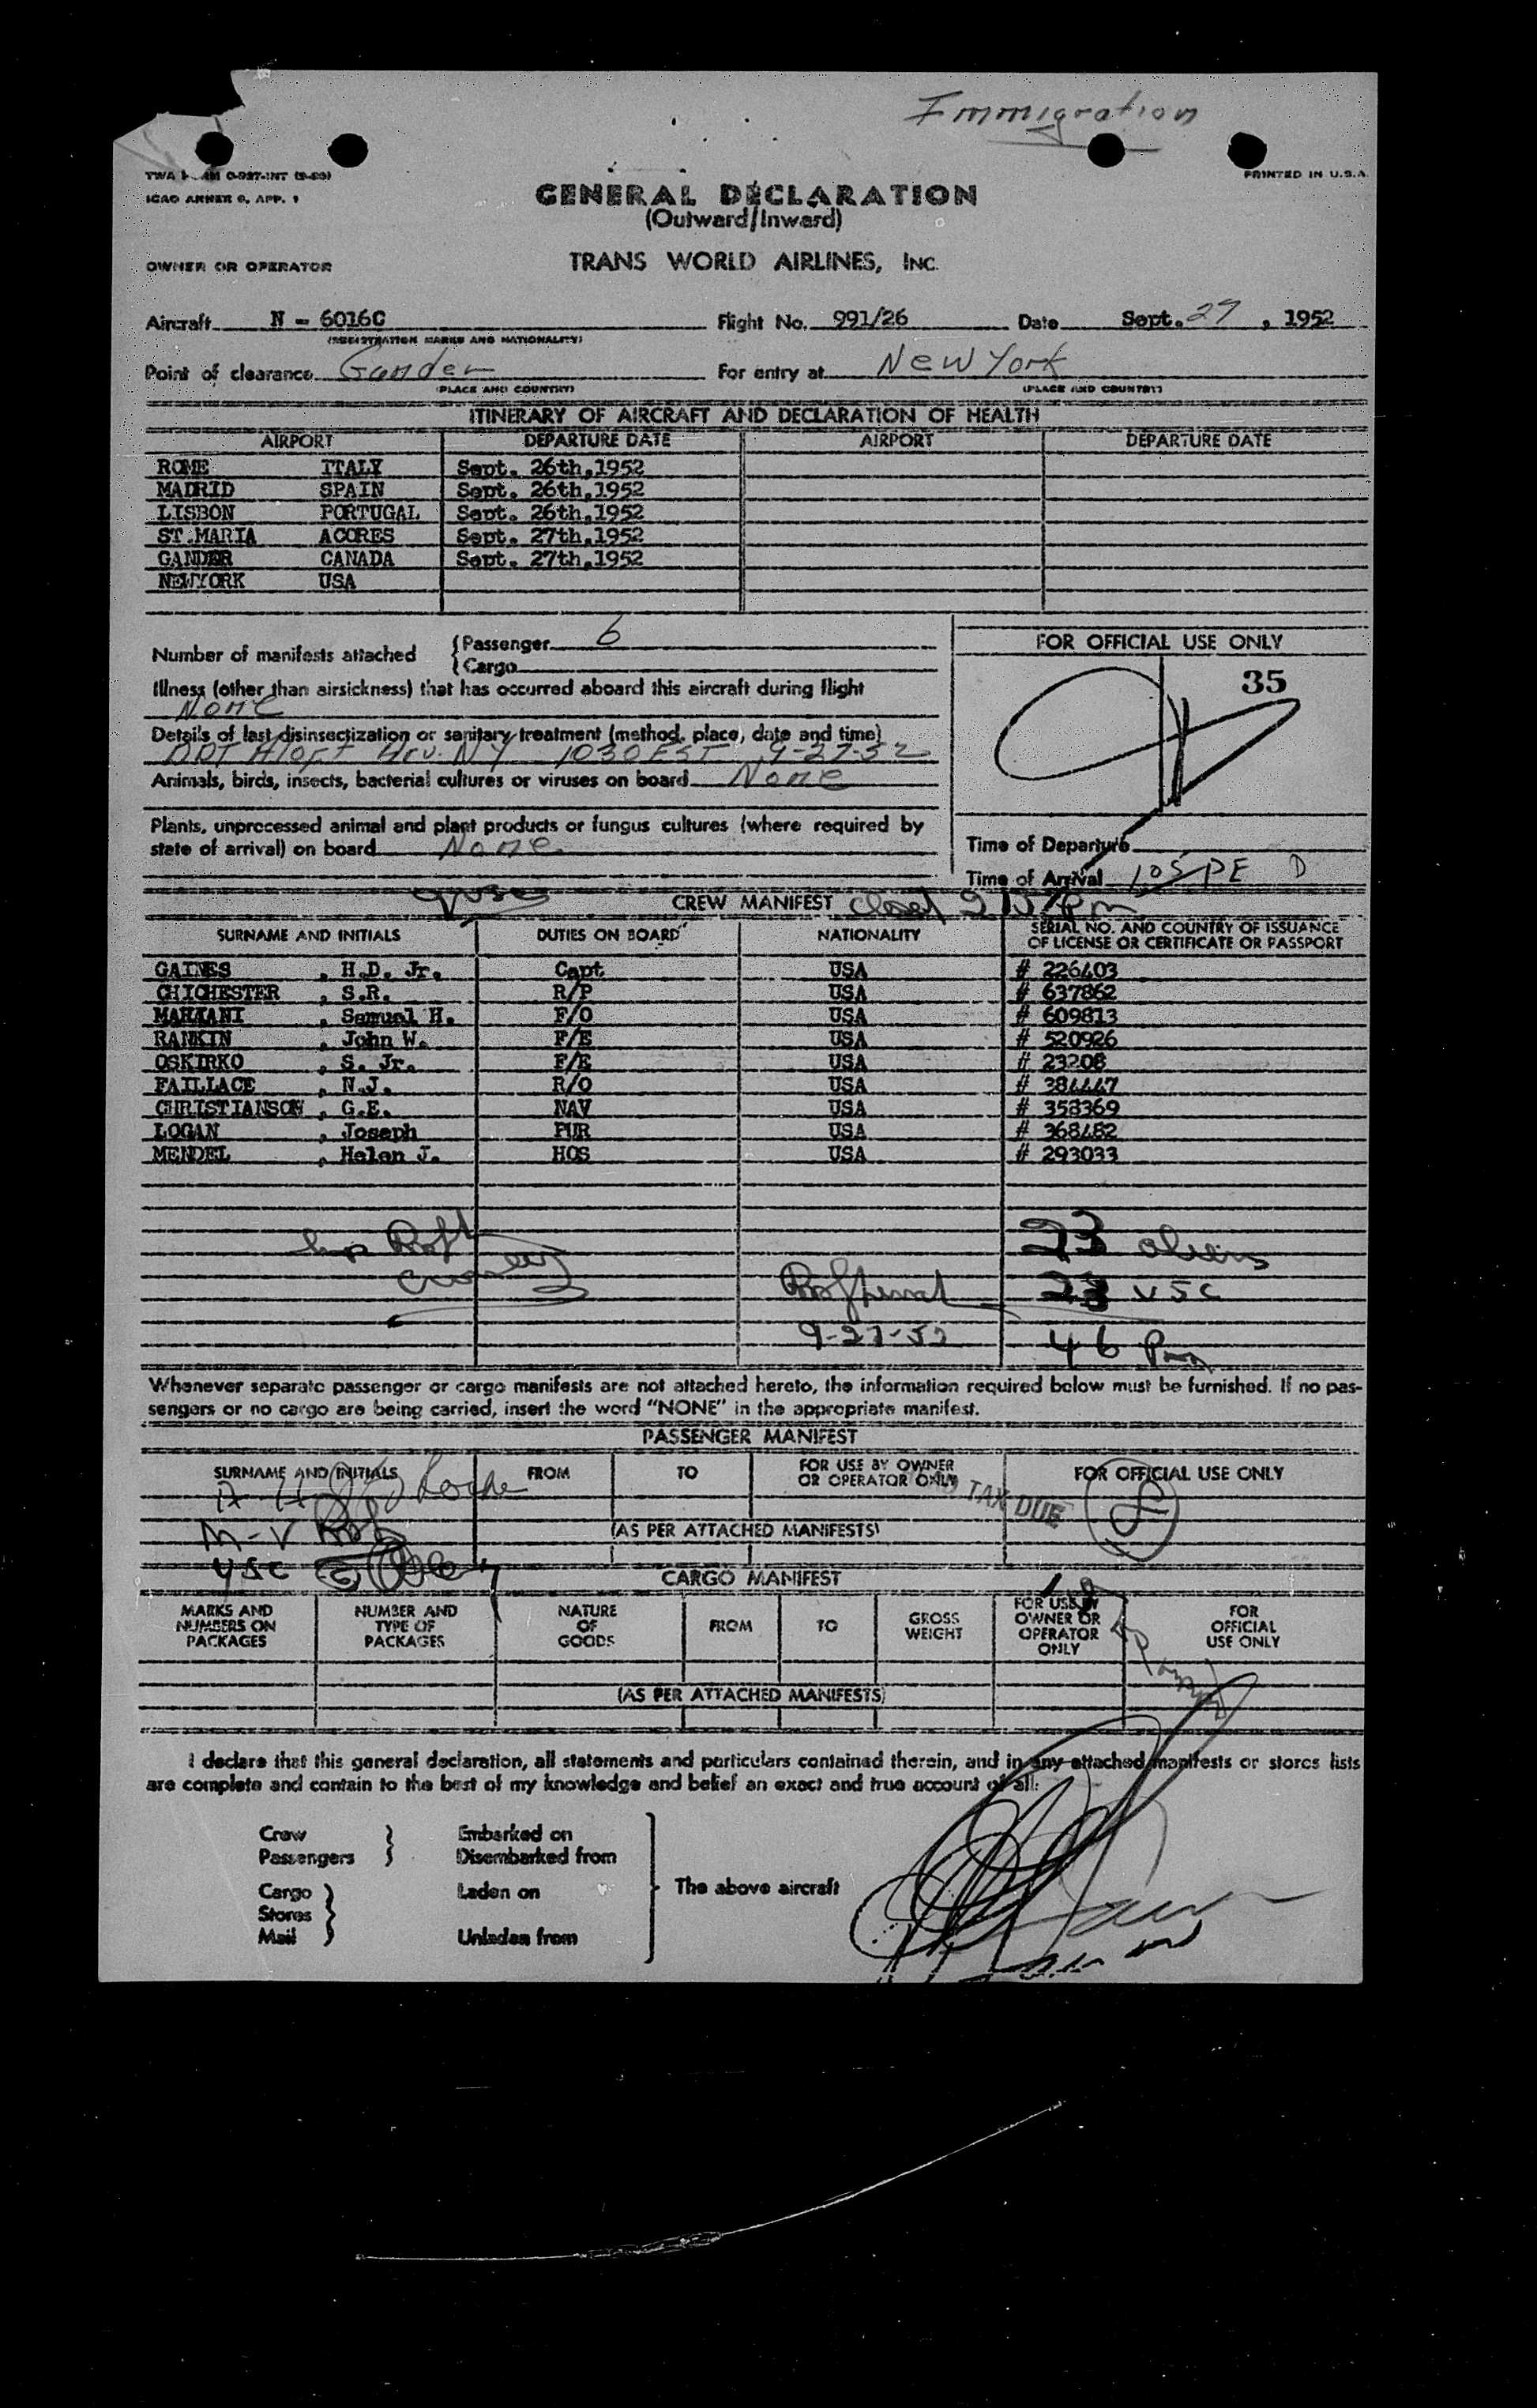 Immigration
TWA FORM O-937-INT
PRINTED IN U.S.A.
ICAO ANNEX 9, APP. 1
GENERAL DECLARATION
(Outward/Inward)
OWNER OR OPERATOR TRANS WORLD AIRLINES, INC.
Aircraft N - 6016C Flight No. 991/26 Date Sept. 27, 1952
(REGISTRATION MARKS AND NATIONALITY)
Point of clearance Gander For entry at New York
(PLACE AND COUNTRY) (PLACE AND COUNTRY)
ITINERARY OF AIRCRAFT AND DECLARATION OF HEALTH
AIRPORT DEPARTURE DATE AIRPORT DEPARTURE DATE
ROME ITALY Sept. 26th,1952
MADRID SPAIN Sept. 26th,1952
LISBON PORTUGAL Sept. 26th,1952
ST.MARIA ACORES Sept. 27th,1952
GANDER CANADA Sept. 27th,1952
NEWYORK USA
Number of manifests attached { Passenger 6
{ Cargo
FOR OFFICIAL USE ONLY
35
Illness (other than airsickness) that has occurred aboard this aircraft during flight
None
Details of last disinsectization or sanitary treatment (method, place, date and time)
DDT Aloft Arv. NY 1030 EST 9-27-52
Animals, birds, insects, bacterial cultures or viruses on board None
Plants, unprocessed animal and plant products or fungus cultures (where required by
state of arrival) on board None
Time of Departure
Time of Arrival 105 PE D
CREW MANIFEST
SURNAME AND INITIALS DUTIES ON BOARD NATIONALITY SERIAL NO. AND COUNTRY OF ISSUANCE
OF LICENSE OR CERTIFICATE OR PASSPORT
GAINES , H.D. Jr. Capt USA # 226403
CHICHESTER , S.R. R/P USA # 637862
, Samuel H. F/O USA # 609813
RANKIN , John W. F/E USA # 520926
OSKIRKO , S. Jr. F/E USA # 23208
FAILLACE , N.J. R/O USA # 384447
CHRISTIANSON , G.E. NAV USA # 358369
LOGAN , Joseph PUR USA # 368482
MENDEL , Helen J. HOS USA # 293033
23 aliens
23 USC
9-27-52 46
Whenever separate passenger or cargo manifests are not attached hereto, the information required below must be furnished. If no pas-
sengers or no cargo are being carried, insert the word "NONE" in the appropriate manifest.
PASSENGER MANIFEST
SURNAME AND INITIALS FROM TO FOR USE BY OWNER
OR OPERATOR ONLY FOR OFFICIAL USE ONLY
TAX DUE
(AS PER ATTACHED MANIFESTS)
M-V
USC
CARGO MANIFEST
MARKS AND
NUMBERS ON
PACKAGES NUMBER AND
TYPE OF
PACKAGES NATURE
OF
GOODS FROM TO GROSS
WEIGHT FOR USE BY
OWNER OR
OPERATOR
ONLY FOR
OFFICIAL
USE ONLY
(AS PER ATTACHED MANIFESTS)
I declare that this general declaration, all statements and particulars contained therein, and in any attached manifests or stores lists
are complete and contain to the best of my knowledge and belief an exact and true account of all:
Crew
Passengers } Embarked on
Disembarked from
Cargo
Stores
Mail } Laden on
Unladen from
The above aircraft